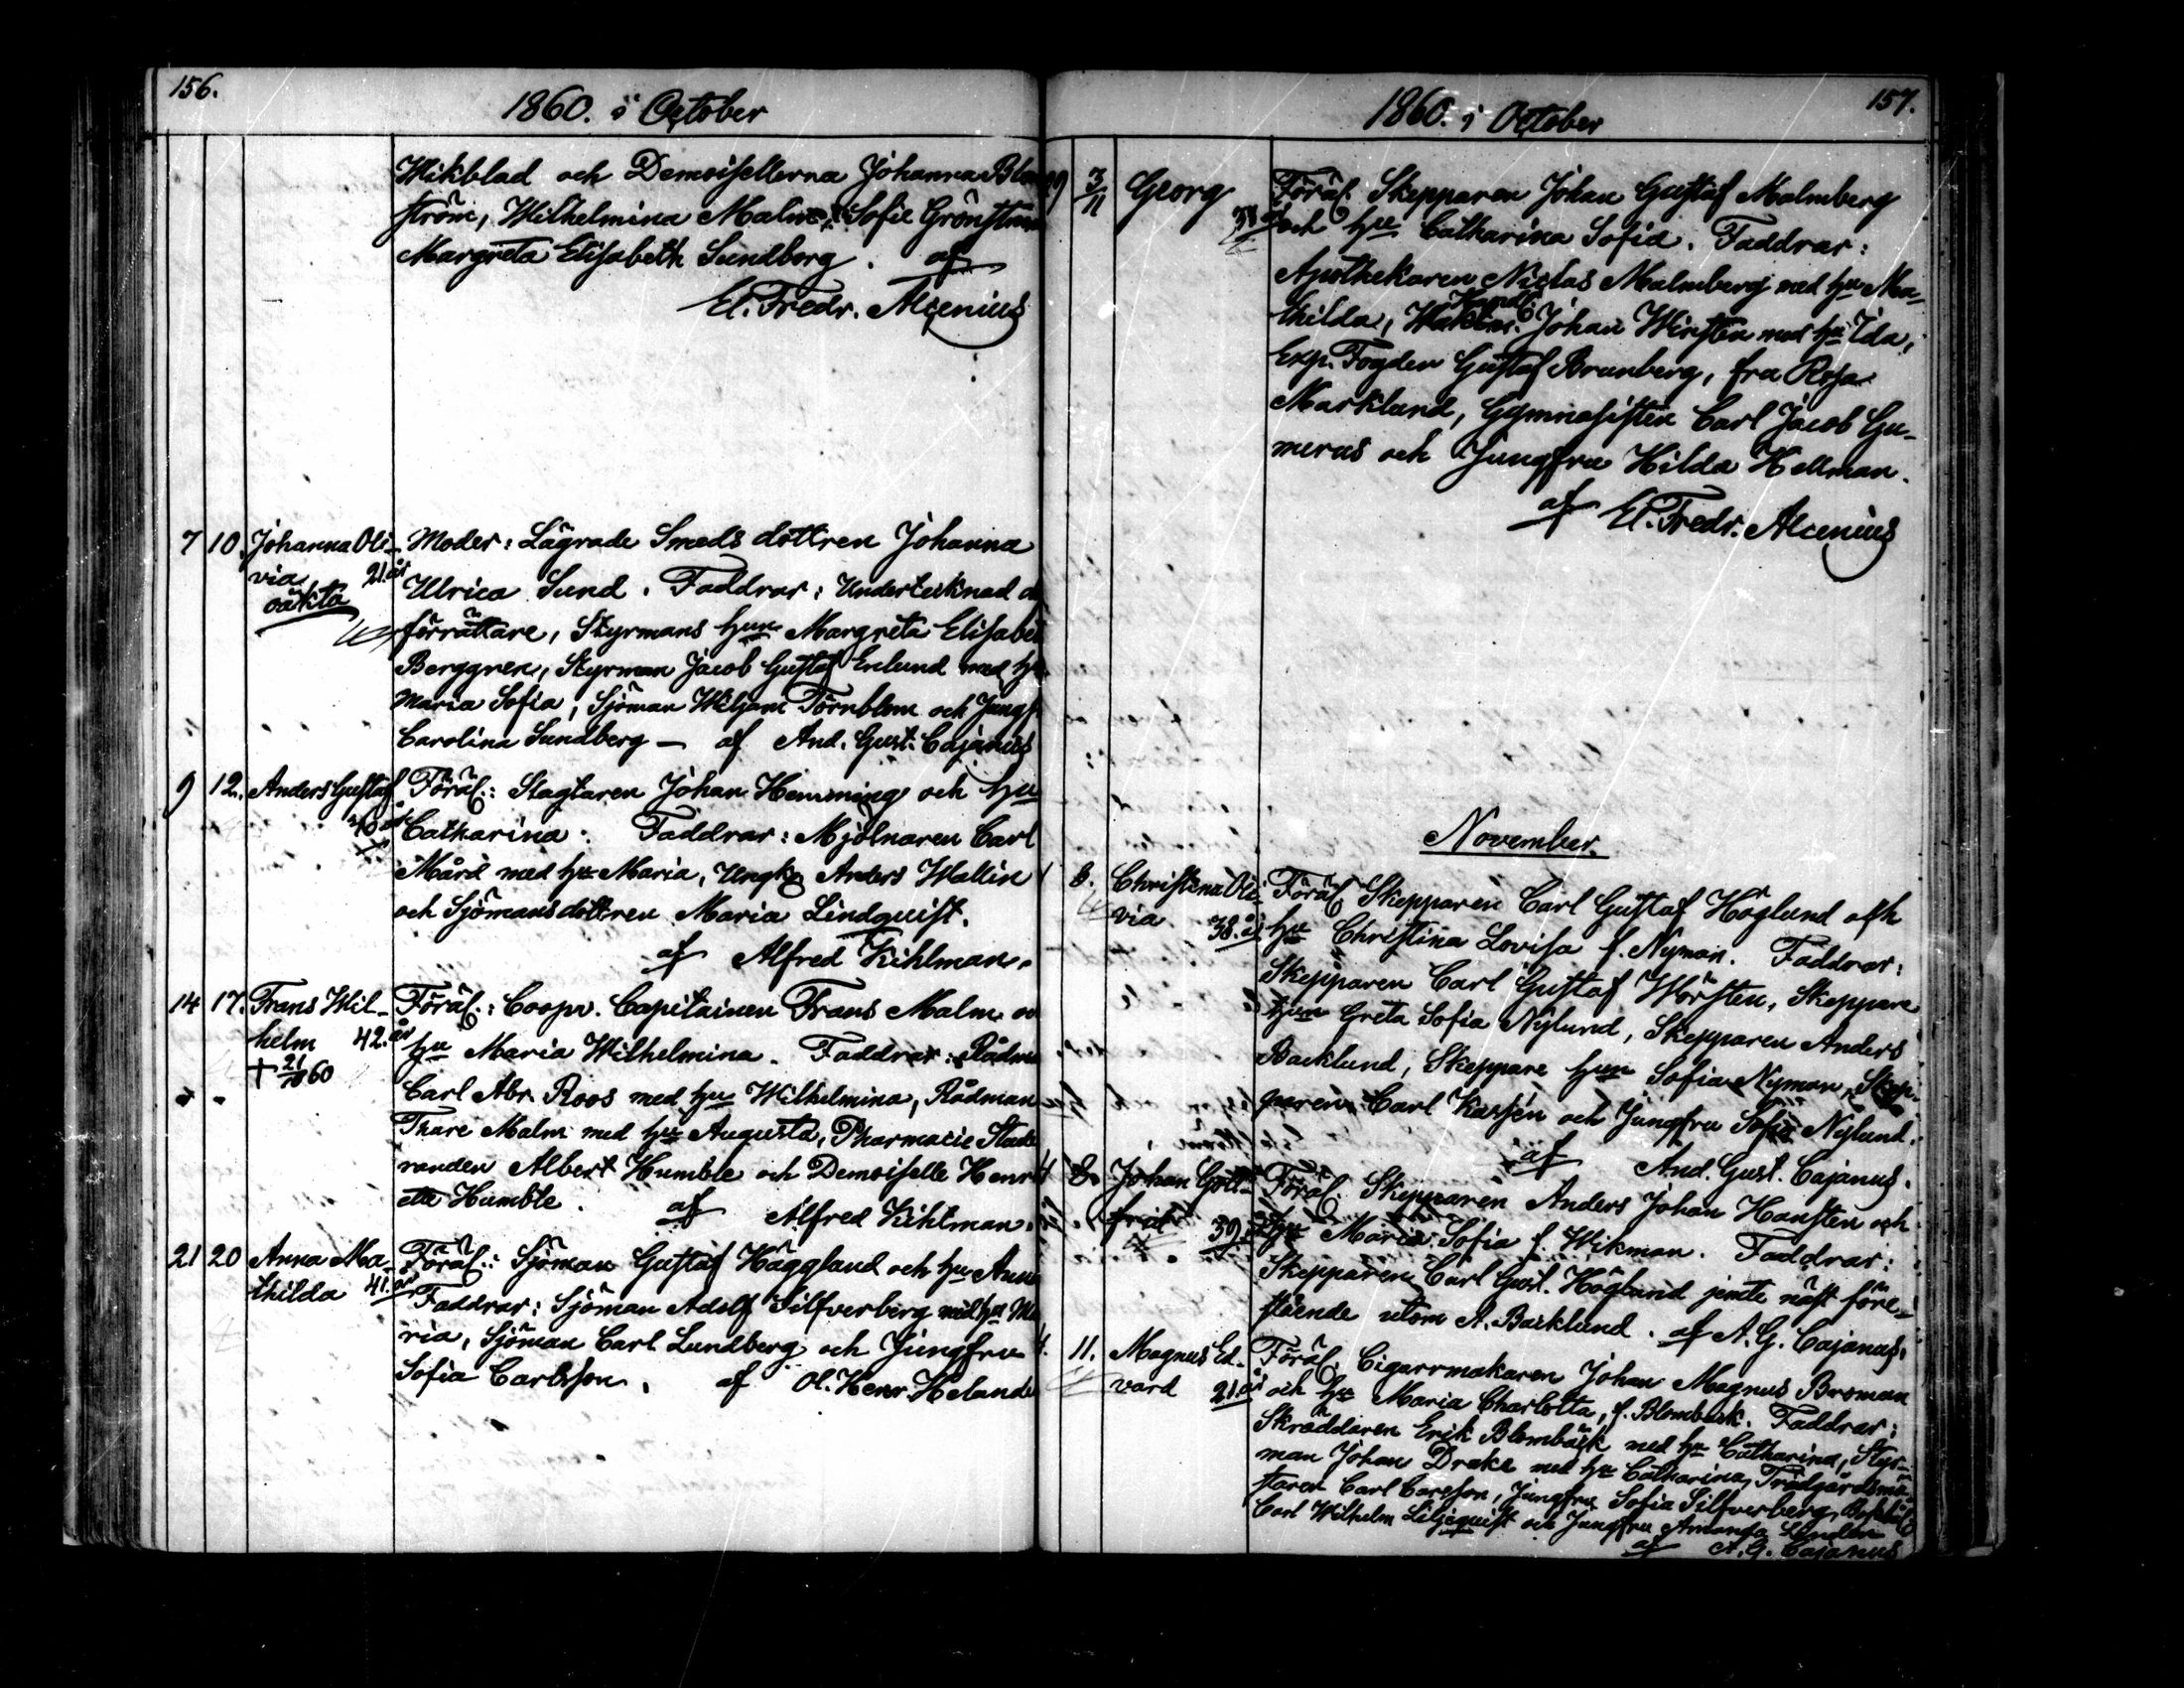 156.
1860. i October
Wikblad och Demoisellerna Johanna Blom
ström, Wilhelmina Malm, Sofie Grönström
Margreta Elisabeth Sundborg. af
El. Fredr. Alcenius
7 10. Johanna Oli- Moder: Lägrade Smedsdottren Johanna
via, 21. år Ulrica Sund. Faddrar: Undertecknad
oäkta förrättare, Styrmans hun Margreta Elisabet
Berggren, Styrman Jacob Gustaf Enlund med hu
Maria Sofia, Sjöman Wiljam Törnblom och Jungf.
Carolina Sundberg — af And. Gust. Cajanus
9 12. Anders Gustaf Föräl.: Slagtaren Johan Hemming och hu
40 år Catharina. Faddrar: Mjölnaren Carl
Mård med hu Maria, Ungk. Anders Wallin
och Sjömansdottren Maria Lindquist.
af Alfred Kihlman.
14 17. Frans Wil- Föräl.: Coopv. Capitainen Frans Malm oc
helm 42. år hu Maria Wilhelmina. Faddrar: Rådma
† 21/10 60
Carl Abr. Roos med hu Wilhelmina, Rådman
Thure Malm med hu Augusta, Pharmacie Stude
randen Albert Humble och Demoiselle Henri
ette Humble. af Alfred Kihlman.
21 20 Anna Ma- Föräl.: Sjöman Gustaf Häggland och hu Anna
thilda 41. år Faddrar: Sjöman Adolf Silfverberg med hu Ma
ria, Sjöman Carl Lundberg och Jungfru
Sofia Carlsson. af Ol. Henr. Helande
157.
1860. i October
29 3/11 Georg Föräl. Skepparen Johan Gustaf Malmberg
och hu Catharina Sofia. Faddrar:
Apothekaren Niclas Malmberg med hu Ma-
thilda, Handl. Johan Wirsten med hu Ida,
Exp. Fogden Gustaf Brunberg, fru Rosa
Marklund, Gymnasisten Carl Jacob Gu-
merus och Jungfru Hilda Hellman.
af El. Fredr. Alcenius
November.
1 8. Christina Oli- Föräl. Skepparen Carl Gustaf Höglund och
via 38. år hu Christina Lovisa f. Nyman. Faddrar:
Skepparen Carl Gustaf Wörsten, Skeppare
hun Greta Sofia Nylund, Skepparen Anders
Backlund, Skeppare hun Sofia Nyman, Skep-
paren Carl Kassén och Jungfru Sofie Nylund.
af And. Gust. Cajanus.
4 8. Johan Gott- Föräl. Skepparen Anders Johan Hansten och
frid 39. hu Maria Sofia f. Wikman. Faddrar:
Skepparen Carl Gust. Höglund jemte näst före-
stående utom A. Backlund. af A. G. Cajanus.
4. 11. Magnus Ed- Föräl. Cigarrmakaren Johan Magnus Broman
vard 21. år och hu Maria Charlotta, f. Blombäck. Faddrar:
Skräddaren Erik Blombäck med hu Catharina, Styr-
man Johan Drake med hu Catharina, Trädgårdsmä-
staren Carl Carlsson, Jungfru Sofia Silfverberg,
Carl Wilhelm Liljequist och Jungfru Amanda
af A. G. Cajanus